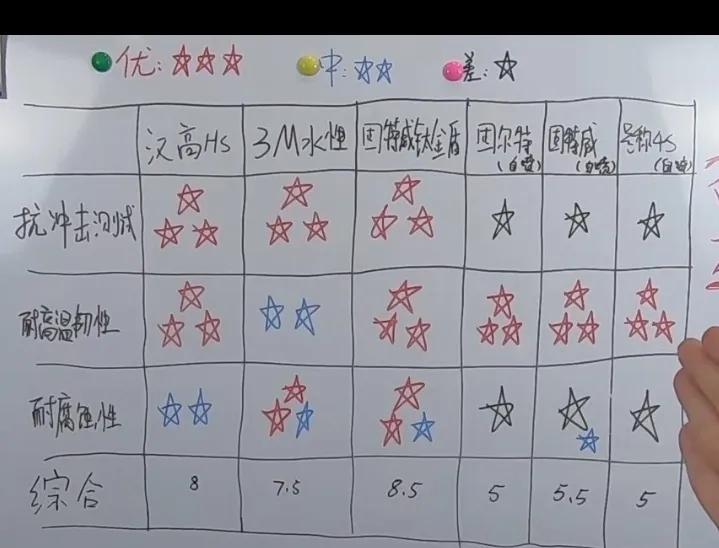 优: 中: 差:
汉高HS 3M水性 固特威钛金盾 固尔特(自喷) 固特威(自喷) 号称4S(自喷)
抗冲击测试
耐高温韧性
耐腐蚀性
综合 8 7.5 8.5 5 5.5 5